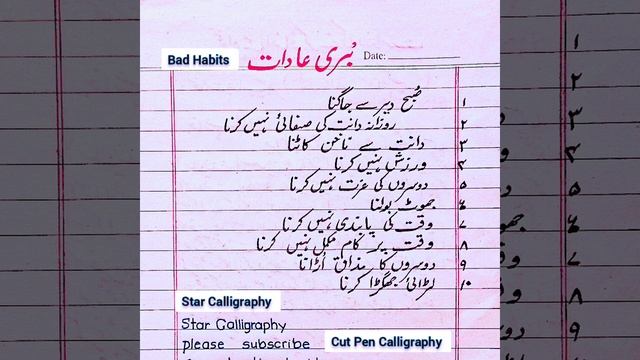 Bad Habits بُری عادات Date:
۱ صُبح دیر سے جاگنا
۲ روزانہ دانت کی صفائی نہیں کرنا
۳ دانت سے ناخن کاٹنا
۴ ورزش نہیں کرنا
۵ دوسروں کی عزت نہیں کرنا
۶ جھوٹ بولنا
۷ وقت کی پابندی نہیں کرنا
۸ وقت پر کام مکمل نہیں کرنا
۹ دوسروں کا مذاق اُڑانا
۱۰ لڑائی جھگڑا کرنا
Star Calligraphy
Star Calligraphy
please subscribe Cut Pen Calligraphy